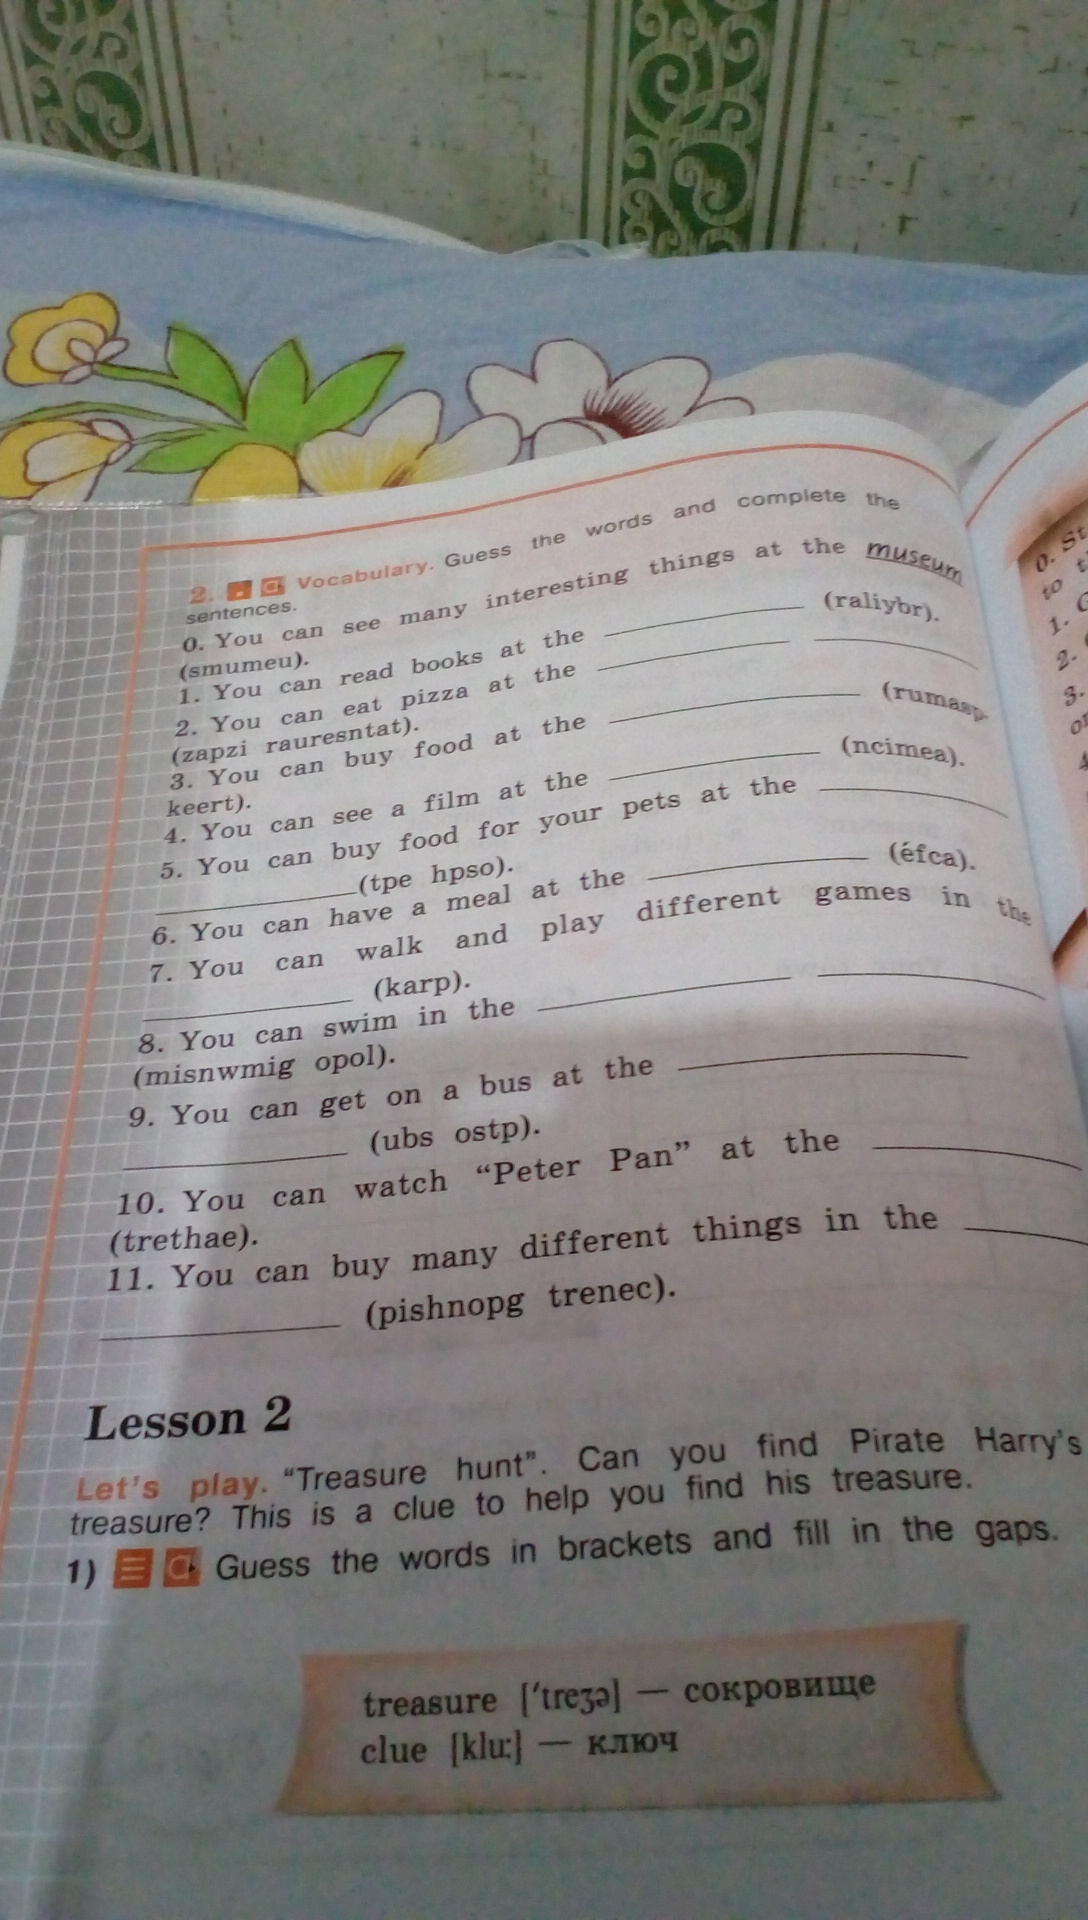 2. Vocabulary. Guess the words and complete the
sentences.
0. You can see many interesting things at the museum
(smumeu).
1. You can read books at the ____________ (raliybr).
2. You can eat pizza at the ____________ ____________
(zapzi rauresntat).
3. You can buy food at the ____________ (rumasp-
keert).
4. You can see a film at the ____________ (ncimea).
5. You can buy food for your pets at the ____________
____________ (tpe hpso).
6. You can have a meal at the ____________ (éfca).
7. You can walk and play different games in the
____________ (karp).
8. You can swim in the ____________ ____________
(misnwmig opol).
9. You can get on a bus at the ____________
____________ (ubs ostp).
10. You can watch “Peter Pan” at the ____________
(trethae).
11. You can buy many different things in the ____________
____________ (pishnopg trenec).
Lesson 2
Let's play. “Treasure hunt”. Can you find Pirate Harry's
treasure? This is a clue to help you find his treasure.
1) Guess the words in brackets and fill in the gaps.
treasure [ˈtreʒə] — сокровище
clue [klu:] — ключ
0. St
to
1.
2.
3.